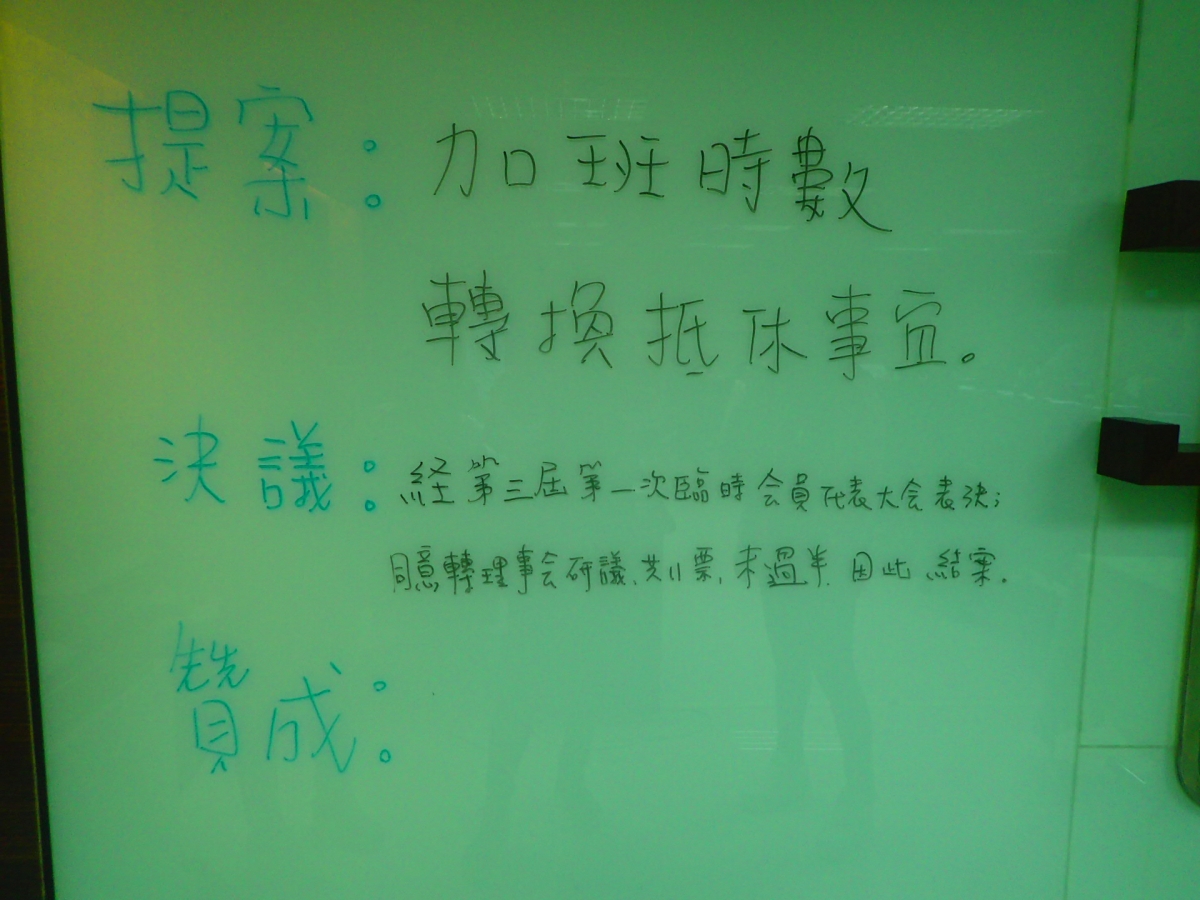 提案：加班時數
轉換抵休事宜。
決議：経第三屆第一次臨時会員代表大会表決；
同意轉理事会研議，共11票，未過半，因此結案。
贊成：